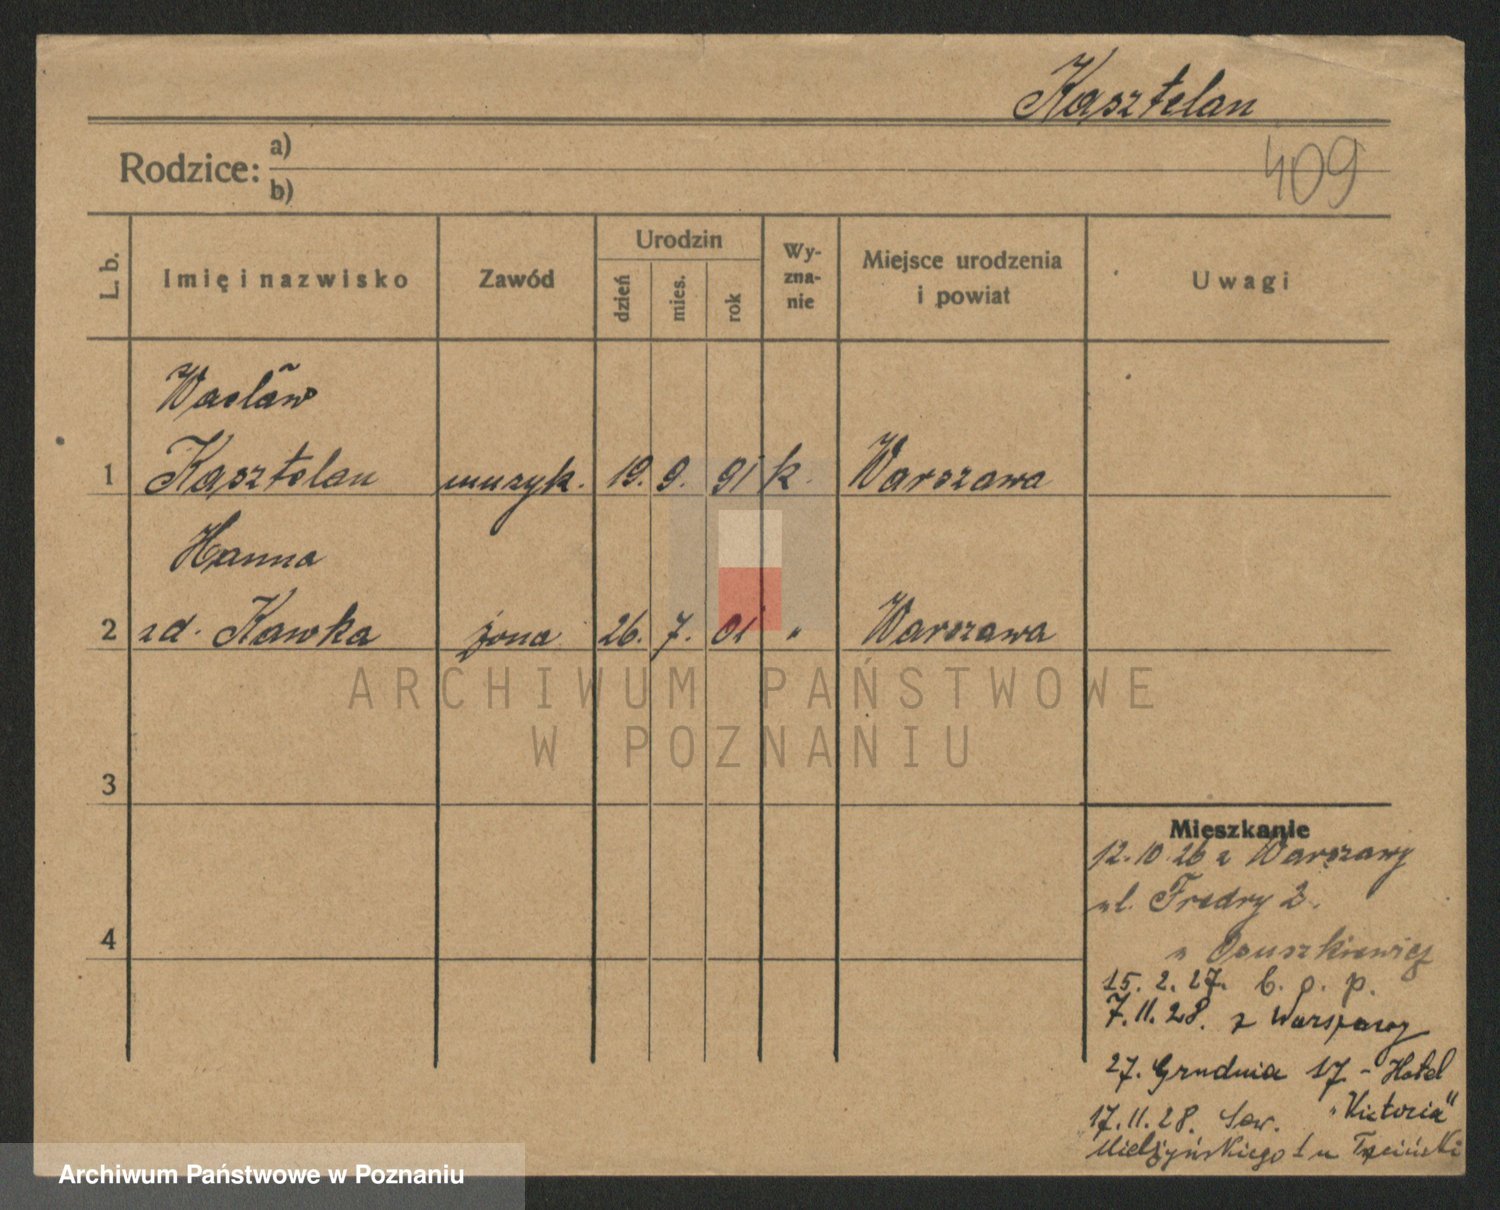 Kasztelan
409
Rodzice: a)
b)
L. b.
Imię i nazwisko
Zawód
Urodzin
dzień
mies.
rok
Wy-
zna-
nie
Miejsce urodzenia
i powiat
Uwagi
Wacław
1 Kasztelan muzyk. 19. 9. 91 k. Warszawa
Hanna
2 zd. Kawka żona 26. 7. 01 " Warszawa
3
4
Mieszkanie
12.10.26 z Warszawy
ul. Fredry 2.
u
15. 2. 27. b. o. p.
7.11.28. z Warszawy
27. Grudnia 17 - Hotel
"Victoria"
17.11.28. Sew.
Mielżyńskiego 1 u
ARCHIWUM PAŃSTWOWE
W POZNANIU
Archiwum Państwowe w Poznaniu